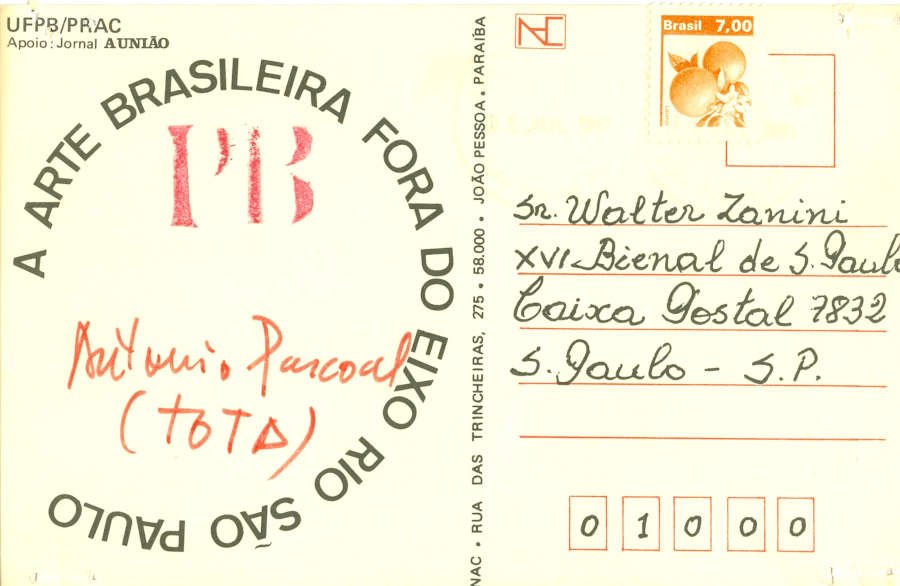 UFPB/PRAC
Apoio: Jornal A UNIÃO
A ARTE BRASILEIRA FORA DO EIXO RIO SÃO PAULO
PB
Antonio Pascoal
(TOTA)
NAC • RUA DAS TRINCHEIRAS, 275 • 58.000 • JOÃO PESSOA • PARAÍBA
NAC
Brasil 7,00
Sr. Walter Zanini
XVI Bienal de S. Paulo
Caixa Postal 7832
S. Paulo - S.P.
0 1 0 0 0